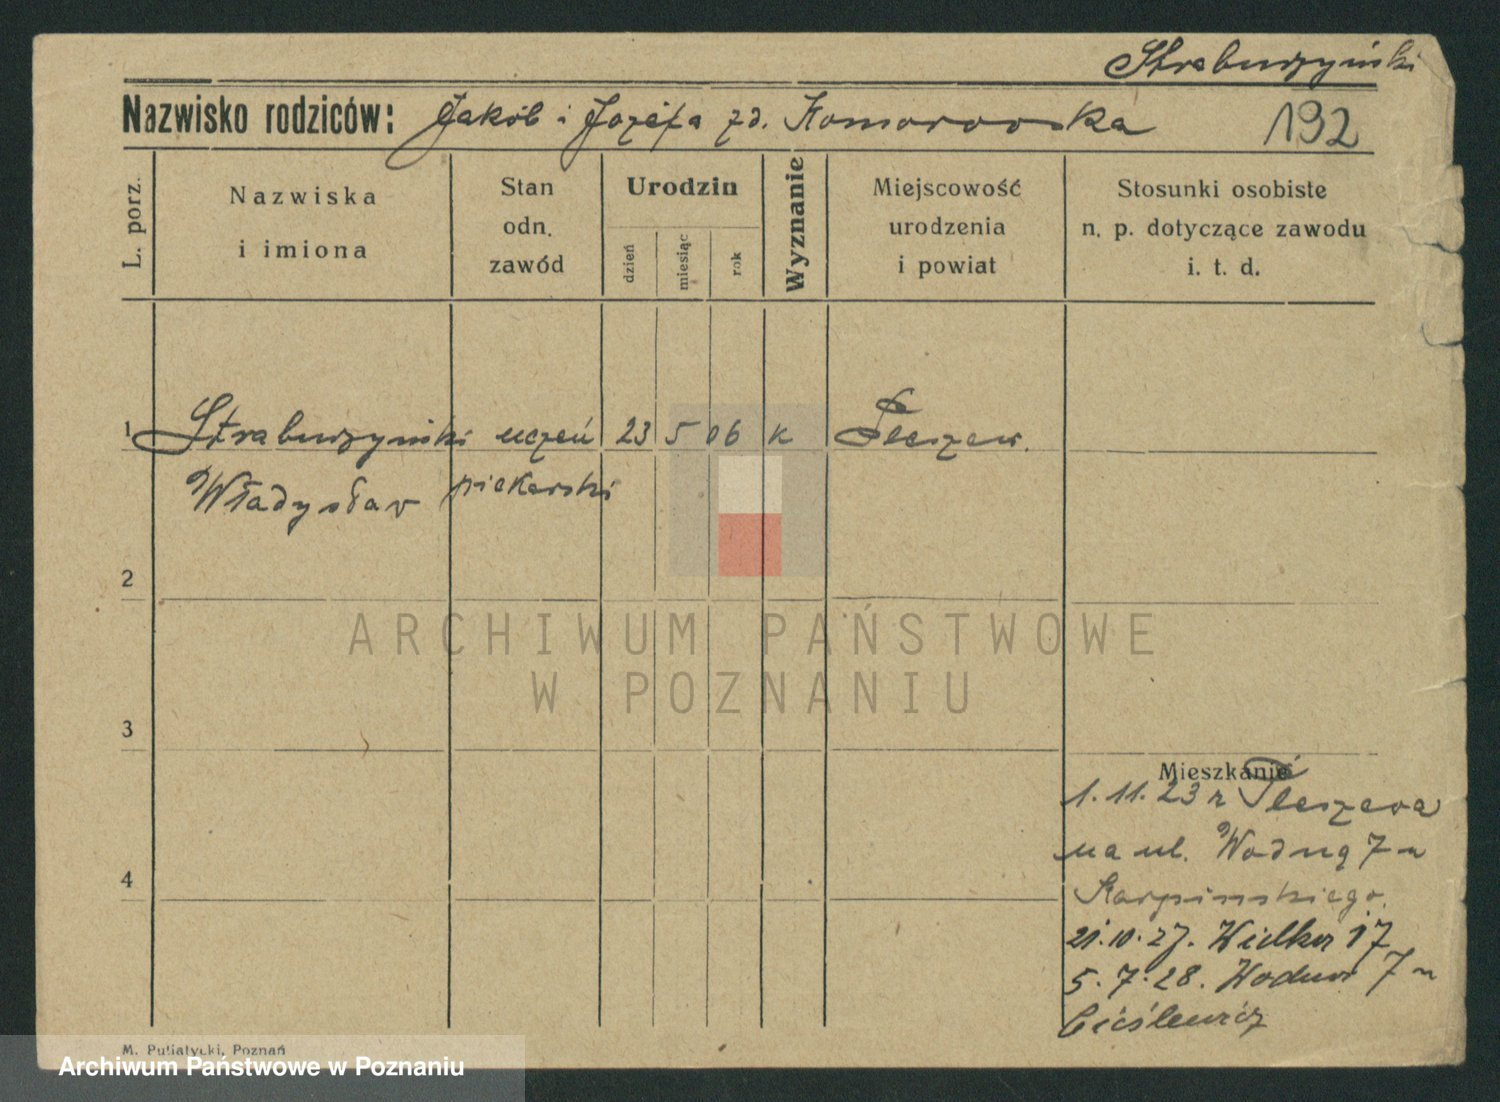 Straburzyński
Nazwisko rodziców: Jakób i Józefa zd. Komorowska 192
L. porz.
Nazwiska
i imiona
Stan
odn.
zawód
Urodzin
dzień
miesiąc
rok
Wyznanie
Miejscowość
urodzenia
i powiat
Stosunki osobiste
n. p. dotyczące zawodu
i. t. d.
1 Straburzyński uczeń 23 5 06 k Pleszew.
Władysław piekarski
2
ARCHIWUM PAŃSTWOWE
W POZNANIU
3
Mieszkanie
1.11.23 z Pleszewa
na ul. Wodną 7 u
Karpinskiego.
4
21.10.27. Wielka 17
5.7.28. Wodna 7 u
Cieślewicz
M. Putiatycki, Poznań
Archiwum Państwowe w Poznaniu